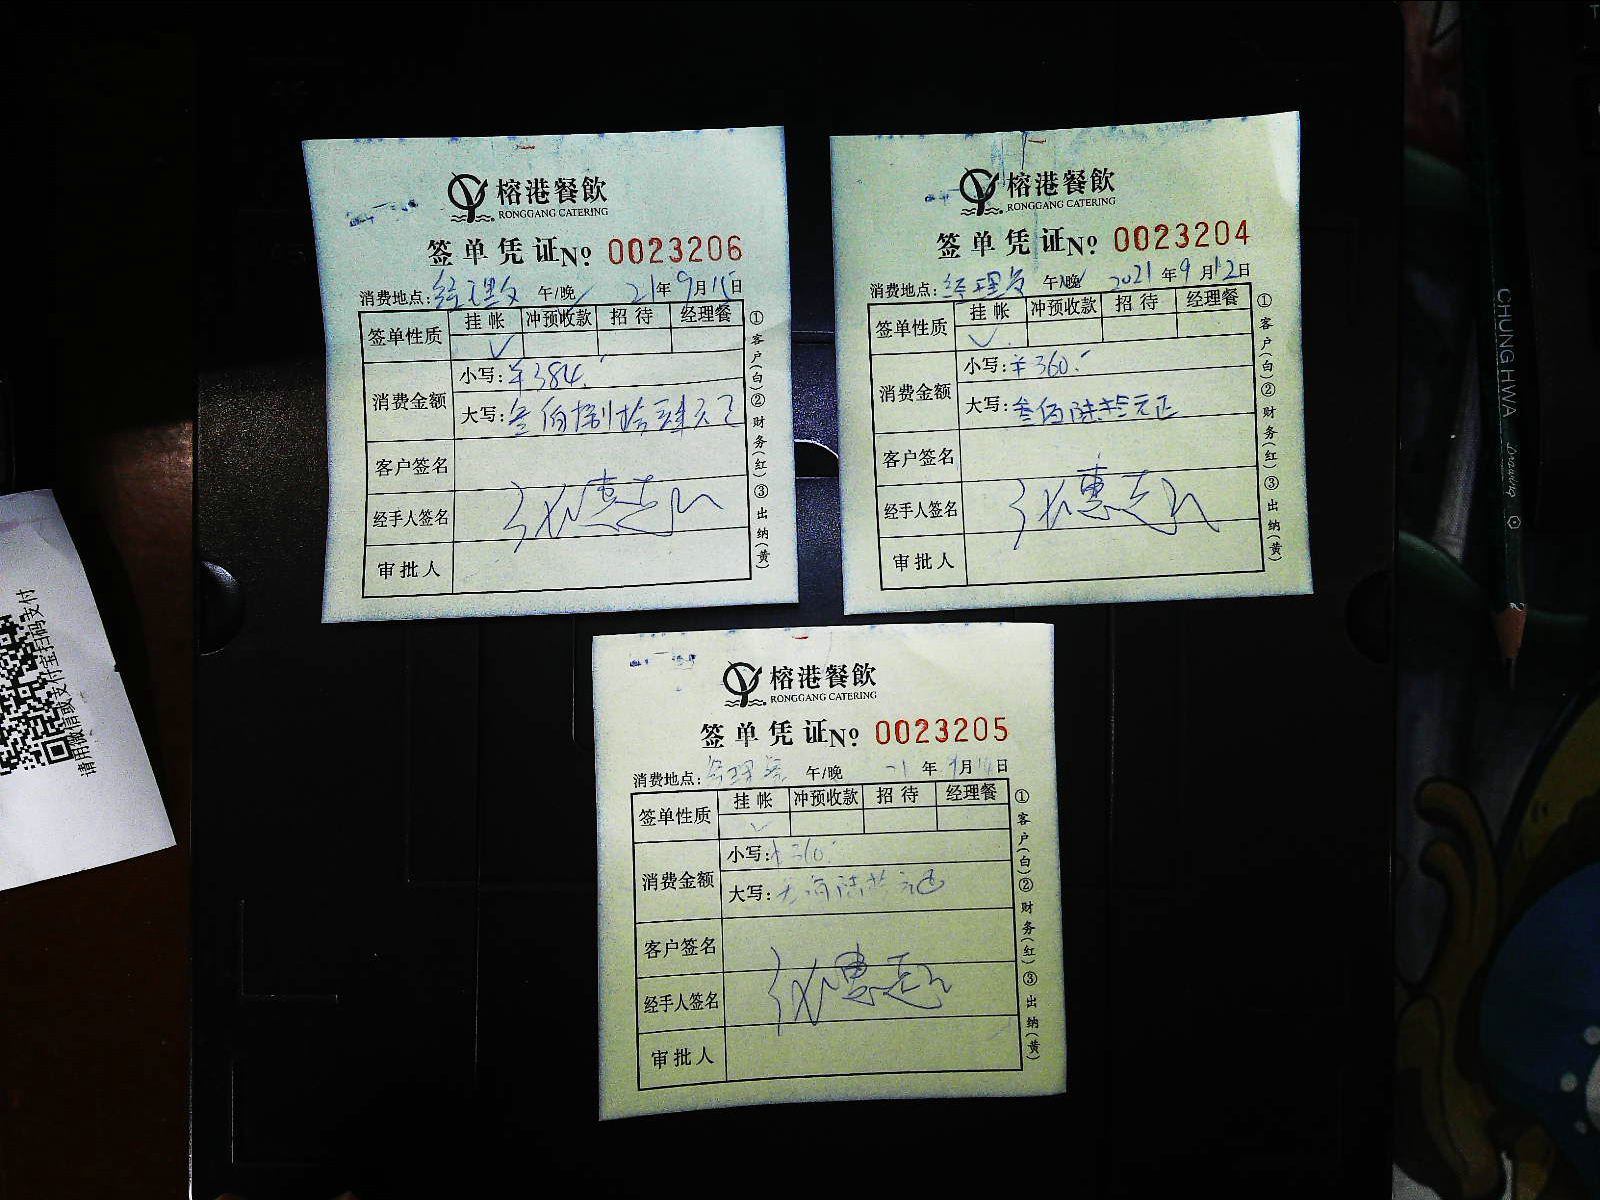 榕港餐飲
RONGGANG CATERING
签单凭证№ 0023206
消费地点: 经理 午/晚 21年9月15日
签单性质 挂帐 冲预收款 招待 经理餐
✓
消费金额
小写: ¥384.
大写: 叁佰捌拾肆元正
客户签名
经手人签名
审批人
①客户(白)②财务(红)③出纳(黄)
榕港餐飲
RONGGANG CATERING
签单凭证№ 0023204
消费地点: 经理 午/晚 2021年9月12日
签单性质 挂帐 冲预收款 招待 经理餐
✓
消费金额
小写: ¥360.
大写: 叁佰陆拾元正
客户签名
经手人签名
审批人
①客户(白)②财务(红)③出纳(黄)
榕港餐飲
RONGGANG CATERING
签单凭证№ 0023205
消费地点: 午/晚 21年9月日
签单性质 挂帐 冲预收款 招待 经理餐
✓
消费金额
小写: ¥360.
大写: 叁佰陆拾元正
客户签名
经手人签名
审批人
①客户(白)②财务(红)③出纳(黄)
请用微信或支付宝扫码支付
CHUNG HWA Drawing